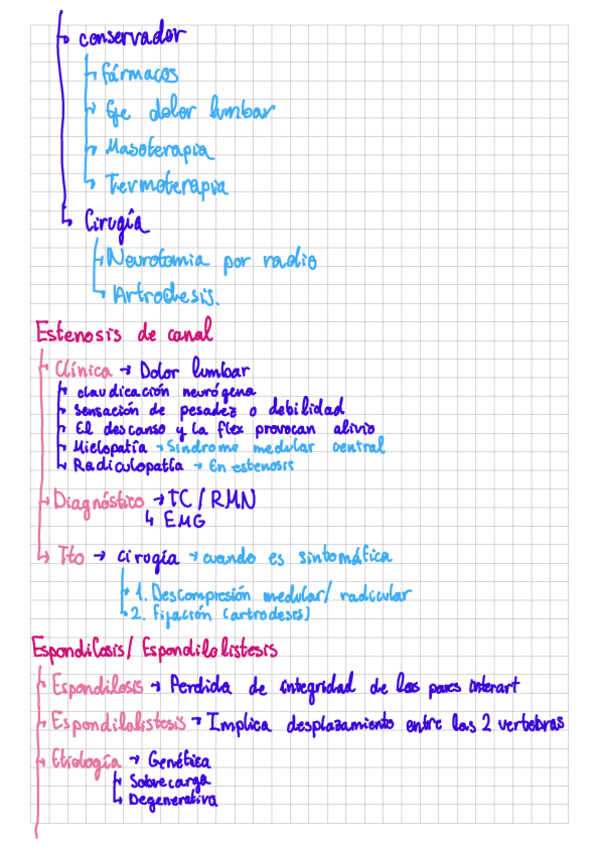 conservador
fármacos
Eje dolor lumbar
Masoterapia
Termoterapia
Cirugía
Neurotomia por radio
Artrodesis.
Estenosis de canal
Clínica → Dolor lumbar
claudicación neurógena
Sensación de pesadez o debilidad
El descanso y la flex provocan alivio
Mielopatía → Sindrome medular central
Radiculopatía → En estenosis
Diagnóstico → TC / RMN
EMG
Tto → cirogía → cuando es sintomática
1. Descompresión medular/ radicular
2. Fijación (artrodesis)
Espondilosis/ Espondilolistesis
Espondilosis → Perdida de integridad de las pares interart
Espondilolistesis → Implica desplazamiento entre las 2 vertebras
Etiología → Genética
Sobrecarga
Degenerativa